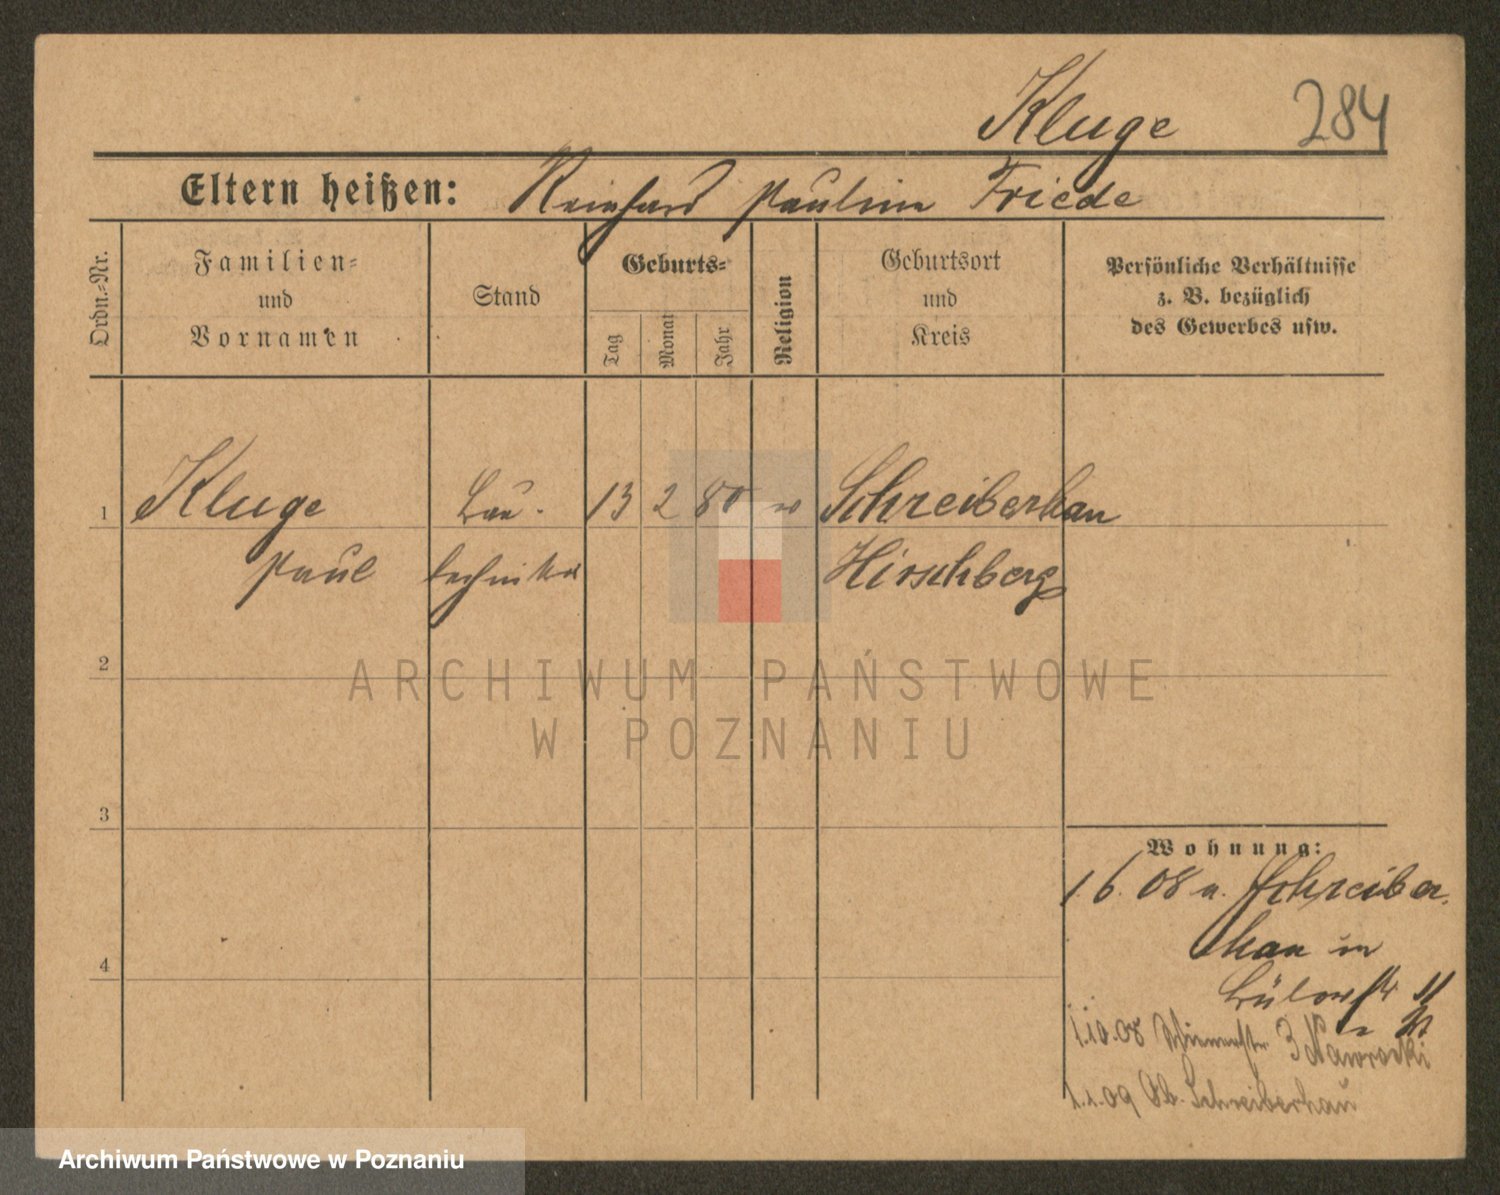 Kluge 284
Eltern heißen: Reinhard Pauline Friede
Ordn.-Nr.
Familien-
und
Vornamen
Stand
Geburts-
Tag
Monat
Jahr
Religion
Geburtsort
und
Kreis
Persönliche Verhältnisse
z. B. bezüglich
des Gewerbes usw.
1 Kluge Bau- 13 2 80 Schreiberhau
Paul techniker Hirschberg
2
3
4
Wohnung:
1.6.08 Schreiber-
hau in
11
1.10.08 3 Nawrocki
1.1.09 Ob. Schreiberhau
ARCHIWUM PAŃSTWOWE
W POZNANIU
Archiwum Państwowe w Poznaniu